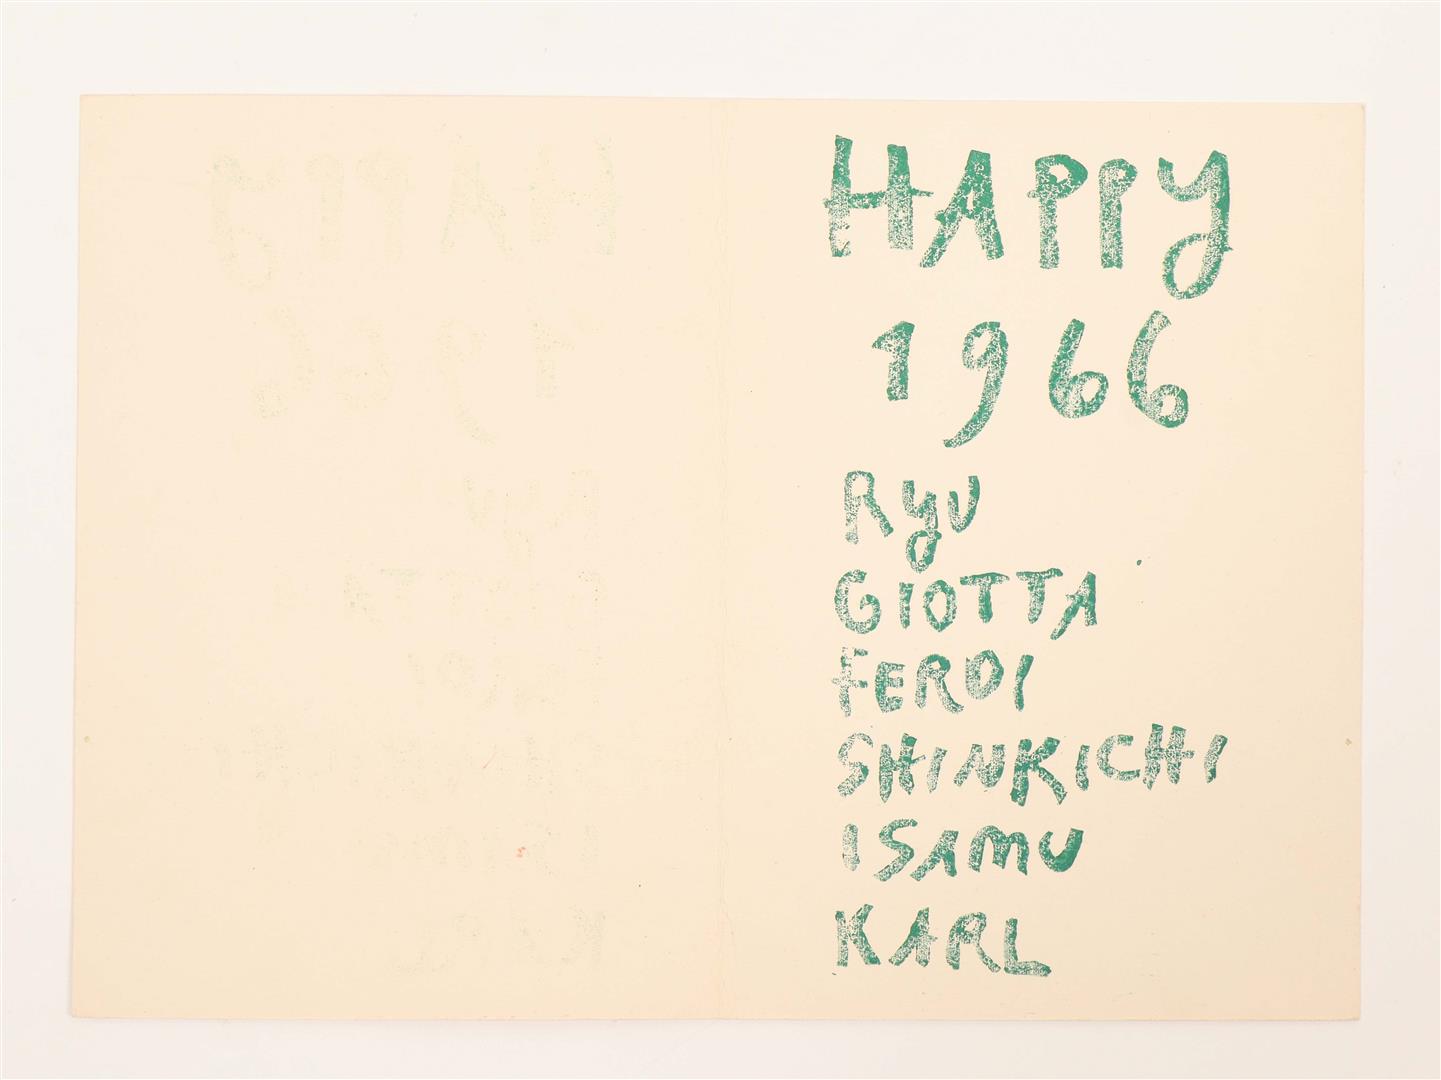 HAPPY
1966
RYU
GIOTTA
FERDI
SHINKICHI
ISAMU
KARL